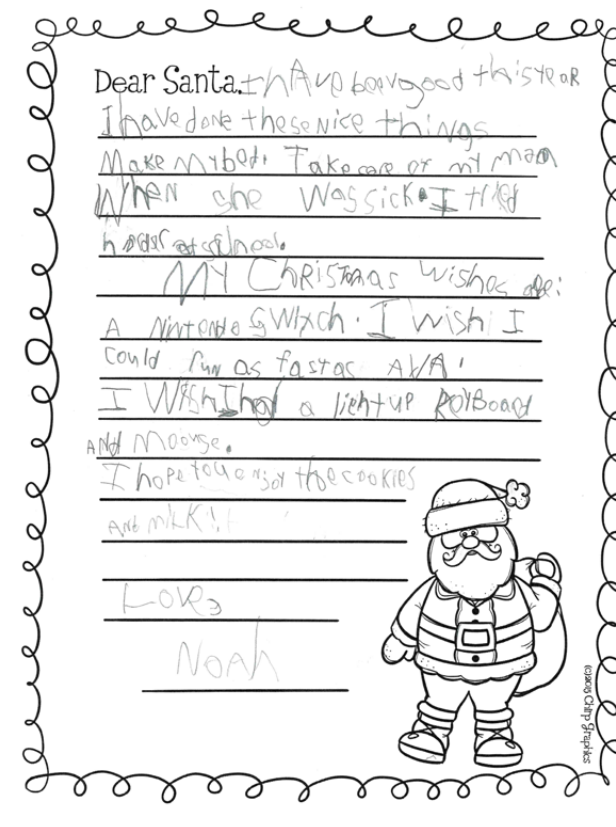 Dear Santa, I hAve beengood this yeaR
I have done these Nice things
Make my bed. Take care of my mom
When she was sick. I tried
harder at school.
My ChRisTmas wishes are:
A Nintendo SWIxch. I wish I
could run as fast as AVA.
I WishIhad a lightup KeyBoard
ANd moouse.
I hope you enjoy the cookies
And milk!
Love
Noah
(c)2015 Chirp Graphics